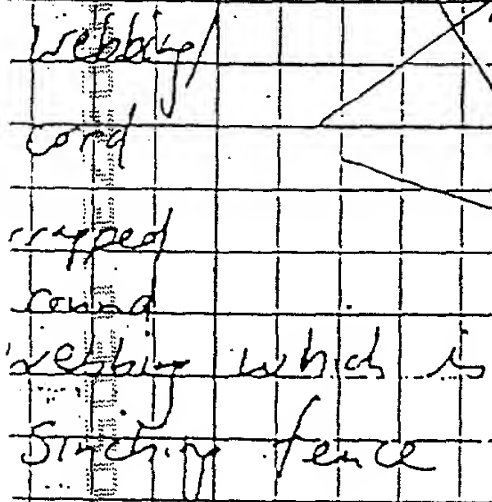 webbing/
cord
rapped
round
webbing which is
Sinching fence